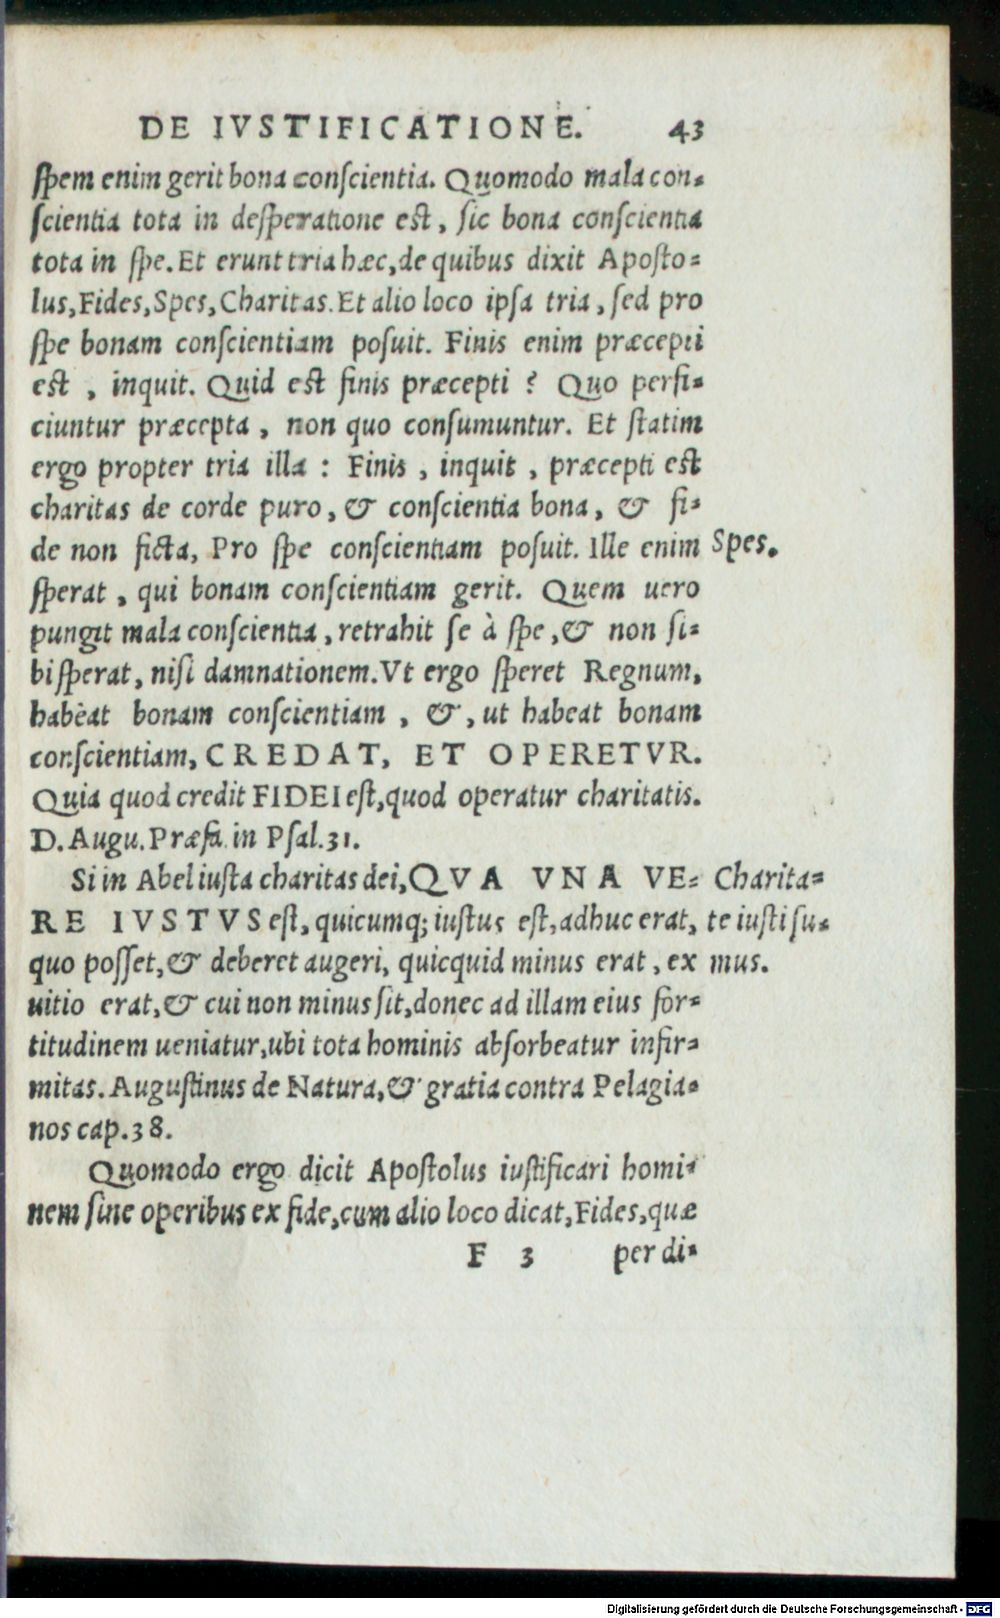 DE IVSTIFICATIONE. 43
spem enim gerit bona conscientia. Quomodo mala con-
scientia tota in desperatione est, sic bona conscientia
tota in spe. Et erunt tria hæc, de quibus dixit Aposto-
lus, Fides, Spes, Charitas. Et alio loco ipsa tria, sed pro
spe bonam conscientiam posuit. Finis enim præcepti
est, inquit. Quid est finis præcepti? Quo perfi-
ciuntur præcepta, non quo consumuntur. Et statim
ergo propter tria illa: Finis, inquit, præcepti est
charitas de corde puro, & conscientia bona, & fi-
de non ficta, Pro spe conscientiam posuit. Ille enim
Spes.
sperat, qui bonam conscientiam gerit. Quem uero
pungit mala conscientia, retrahit se à spe, & non si-
bi sperat, nisi damnationem. Vt ergo speret Regnum,
habeat bonam conscientiam, &, ut habeat bonam
conscientiam, CREDAT, ET OPERETVR.
Quia quod credit FIDEI est, quod operatur charitatis.
D. Augu. Præfa. in Psal. 31.
Si in Abel iusta charitas dei, QVA VNA VE-
RE IVSTVS est, quicumq; iustus est, adhuc erat,
quo posset, & deberet augeri, quicquid minus erat, ex
Charita-
te iusti su-
mus.
uitio erat, & cui non minus sit, donec ad illam eius for-
titudinem ueniatur, ubi tota hominis absorbeatur infir-
mitas. Augustinus de Natura, & gratia contra Pelagia-
nos cap. 38.
Quomodo ergo dicit Apostolus iustificari homi-
nem sine operibus ex fide, cum alio loco dicat, Fides, quæ
F 3 per di-
Digitalisierung gefördert durch die Deutsche Forschungsgemeinschaft - DFG